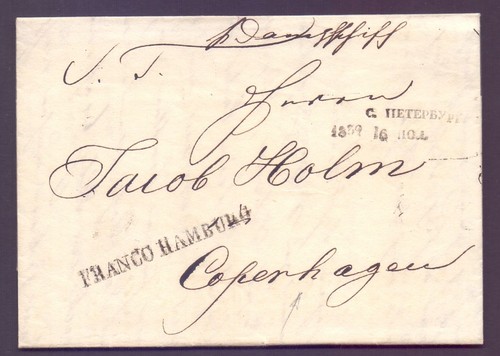 Dampfschiff
S. T.
Herrn
С. ПЕТЕРБУРГ
1839 16 НОЯ.
Jacob Holm
FRANCO HAMBURG
Copenhagen